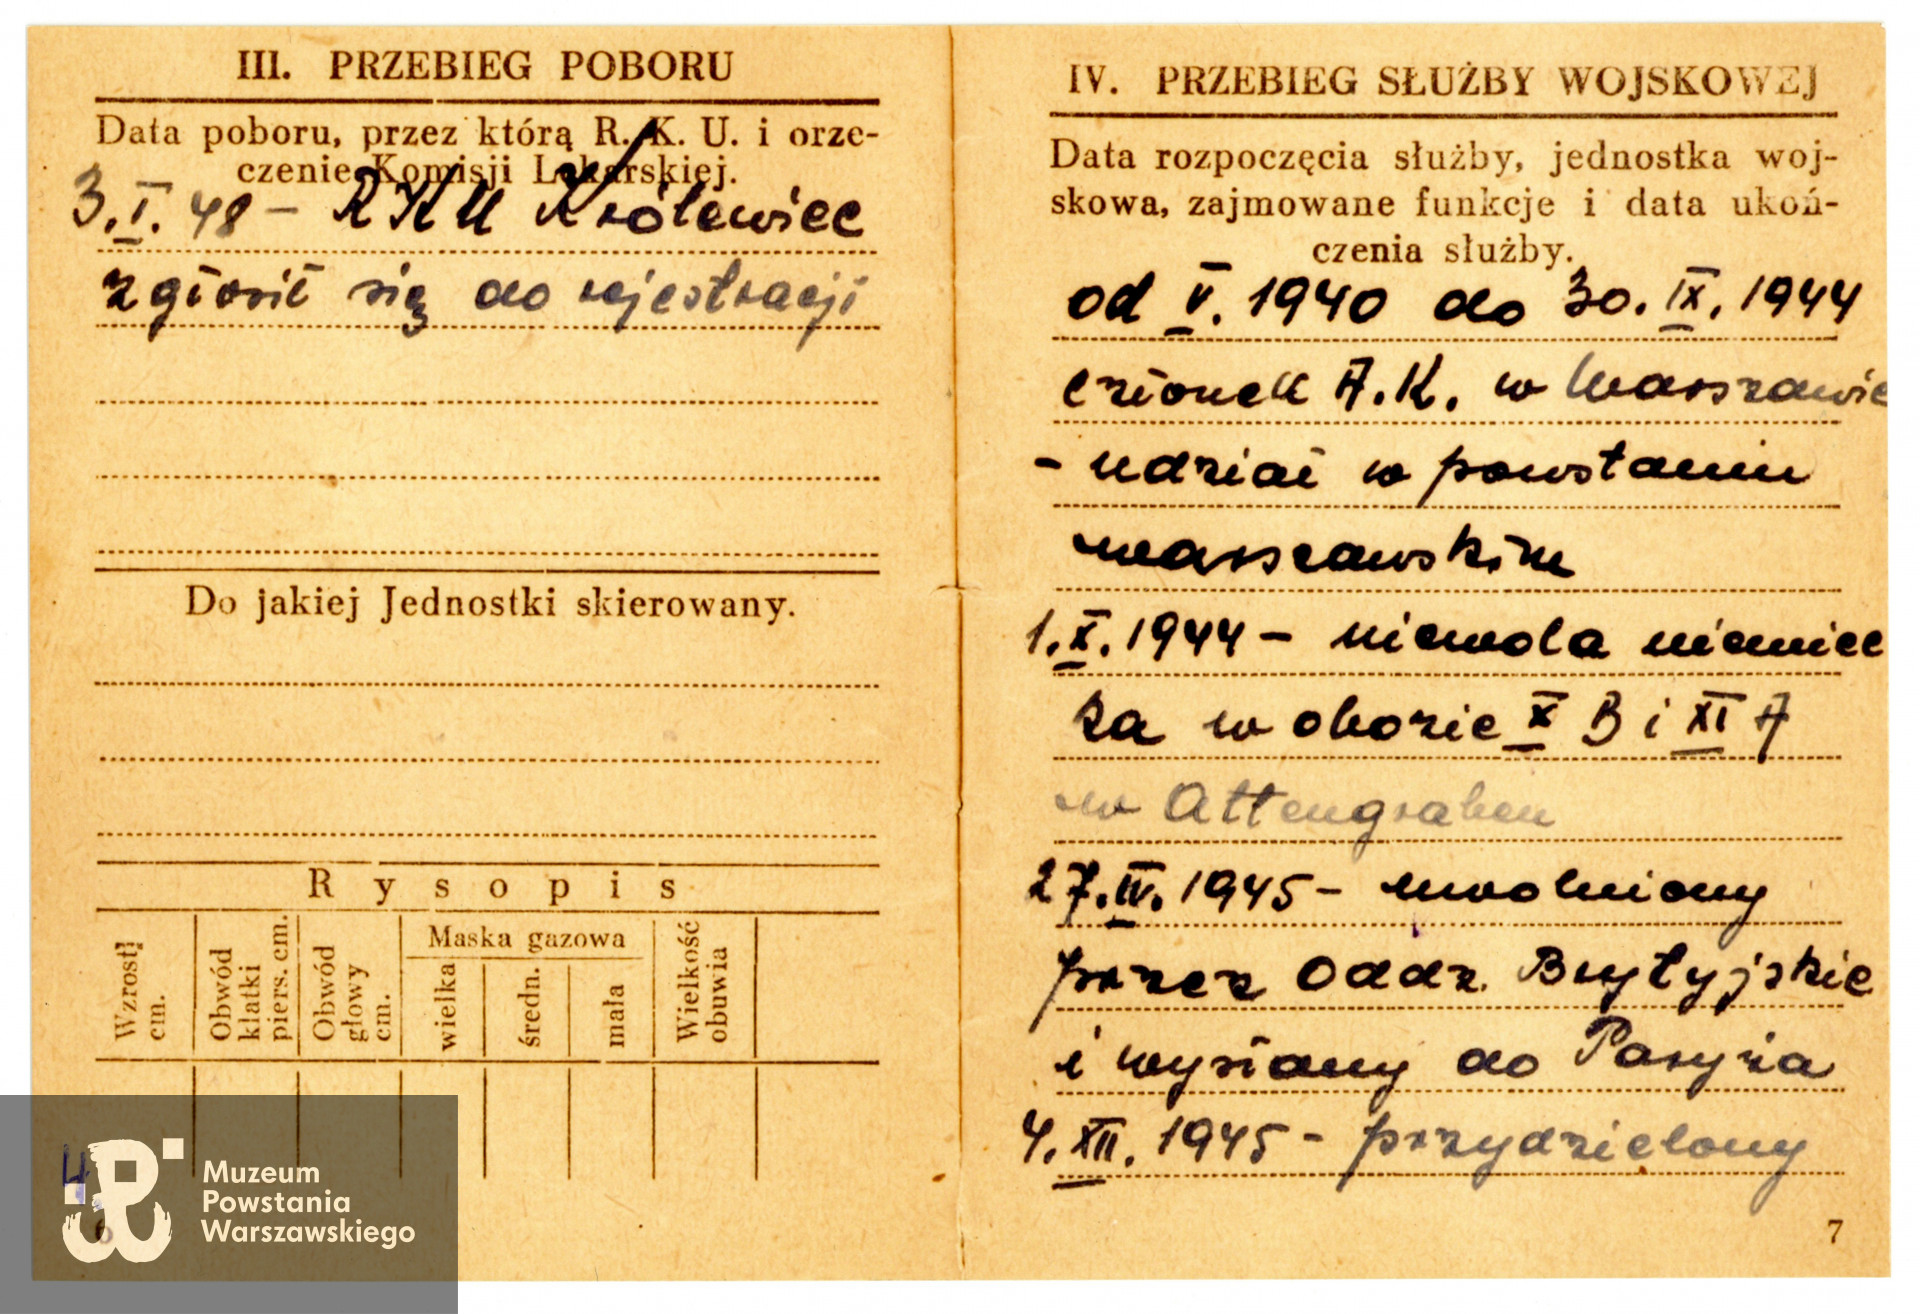 III. PRZEBIEG POBORU
Data poboru, przez którą R. K. U. i orze-
czenie Komisji Lekarskiej.
3.I.48 - RKU Królewiec
zgłosił się do rejestracji
Do jakiej Jednostki skierowany.
Rysopis
Wzrost cm.
Obwód klatki piers. cm.
Obwód głowy cm.
Maska gazowa
wielka
średn.
mała
Wielkość obuwia
6
IV. PRZEBIEG SŁUŻBY WOJSKOWEJ
Data rozpoczęcia służby, jednostka woj-
skowa, zajmowane funkcje i data ukoń-
czenia służby.
od V. 1940 do 30. IX. 1944
członek A.K. w Warszawie
- udział w powstaniu
warszawskim
1.X.1944 - niewola niemiec
ka w obozie X B i XI A
w Altengraben
27.IV.1945 - uwolniony
przez Oddz. Brytyjskie
i wysłany do Paryża
4.XII.1945 - przydzielony
7
Muzeum
Powstania
Warszawskiego